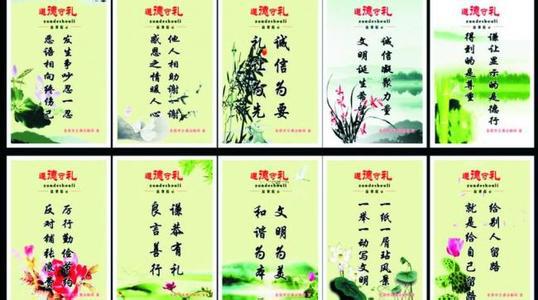 遵德守礼
zundeshouli
发生争吵忍一忍
恶语相向终伤己
遵德守礼
zundeshouli
他人相助谢一谢
感恩之情暖人心
遵德守礼
zundeshouli
诚信为要
礼让为先
遵德守礼
zundeshouli
诚信凝聚
文明诞生
遵德守礼
zundeshouli
谦让显示的是德行
得到的是尊重
遵德守礼
zundeshouli
厉行勤俭节约
反对铺张浪费
遵德守礼
zundeshouli
谦恭有礼
良言善行
遵德守礼
zundeshouli
文明为美
和谐为本
遵德守礼
zundeshouli
一纸一屑玷风景
一举一动写文明
遵德守礼
zundeshouli
给别人留路
就是给自己留路